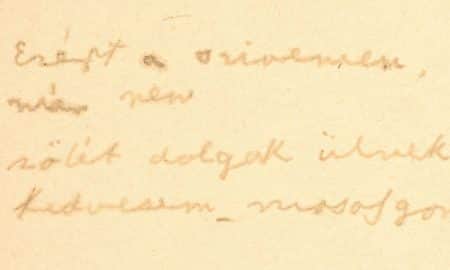 Ezért a szivemen,
már nem
sötét dolgok ülnek
kedvesem - mosolygon